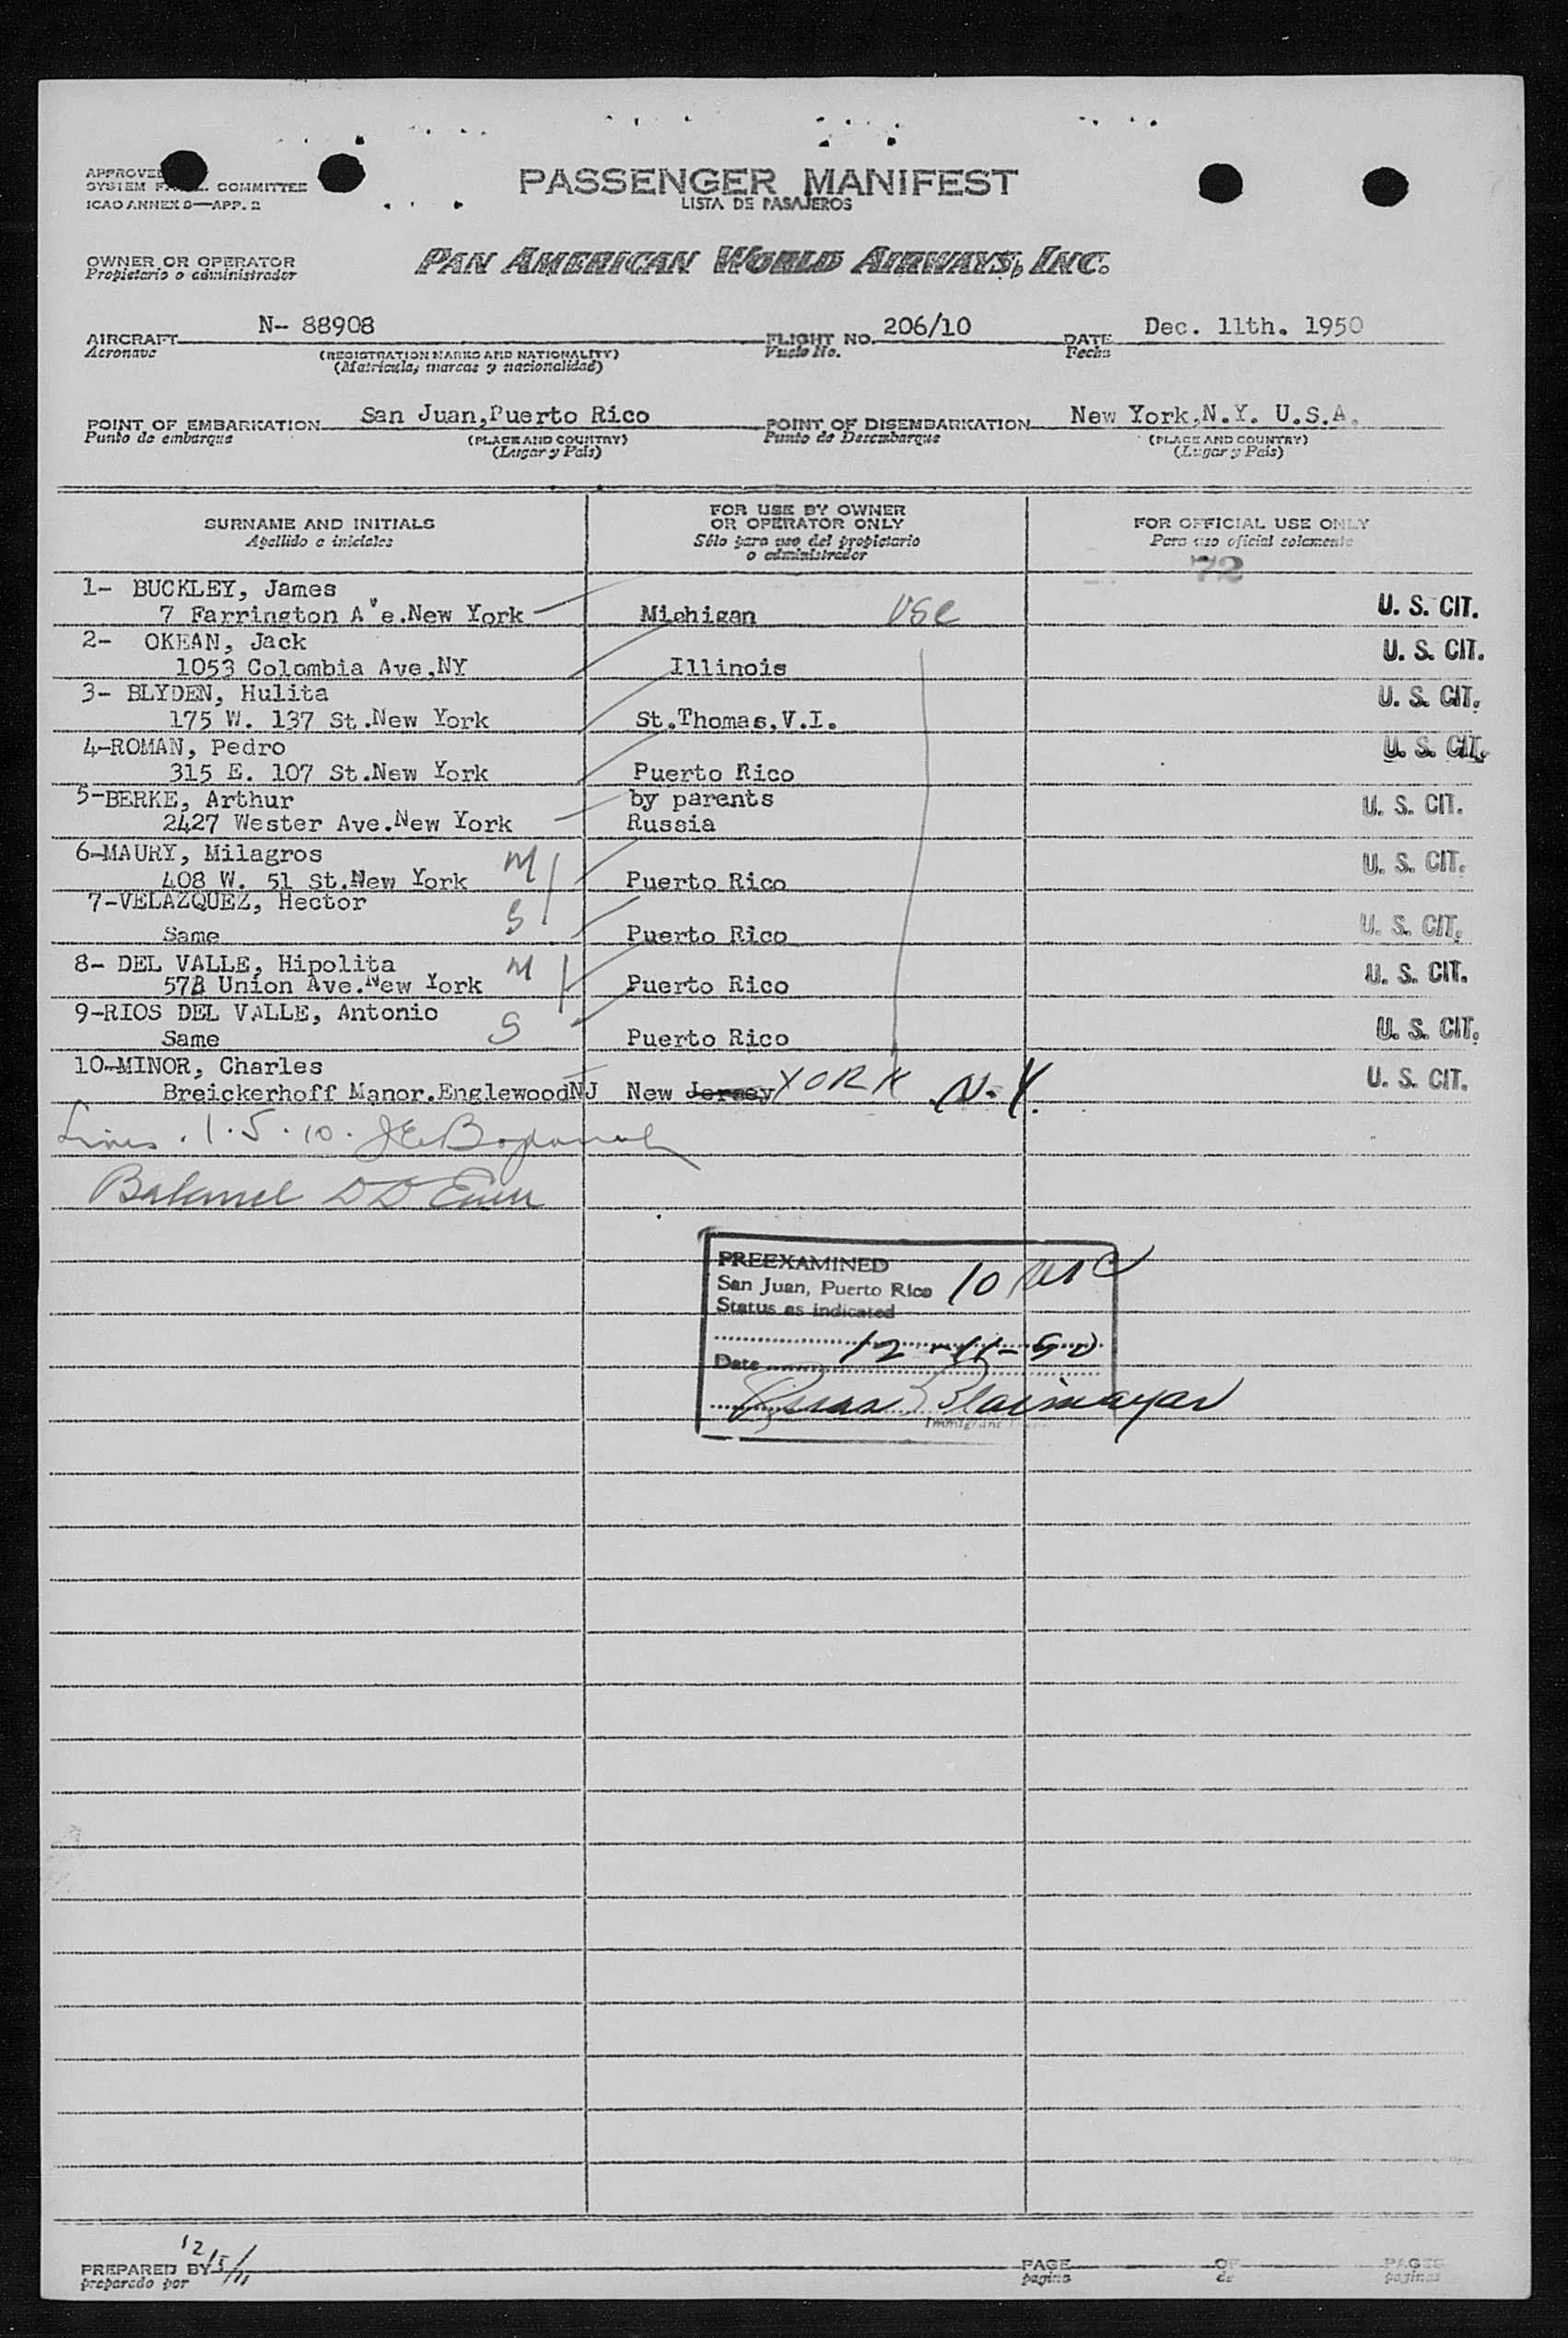 APPROVED
SYSTEM COMMITTEE
ICAO ANNEX 9—APP. 2
PASSENGER MANIFEST
LISTA DE PASAJEROS
OWNER OR OPERATOR
Propietario o administrador
PAN AMERICAN WORLD AIRWAYS, INC.
AIRCRAFT N- 88908 FLIGHT NO. 206/10 DATE Dec. 11th. 1950
Aeronave (REGISTRATION MARKS AND NATIONALITY) Vuelo No. Fecha
(Matricula, marcas y nacionalidad)
POINT OF EMBARKATION San Juan,Puerto Rico POINT OF DISEMBARKATION New York,N.Y. U.S.A.
Punto de embarque (PLACE AND COUNTRY) Punto de Desembarque (PLACE AND COUNTRY)
(Lugar y Pais) (Lugar y Pais)
SURNAME AND INITIALS
Apellido e iniciales
FOR USE BY OWNER
OR OPERATOR ONLY
Sólo para uso del propietario
o administrador
FOR OFFICIAL USE ONLY
Para uso oficial solamente
72
1- BUCKLEY, James
7 Farrington Ave.New York Michigan USC U. S. CIT.
2- OKEAN, Jack
1053 Colombia Ave,NY Illinois U. S. CIT.
3- BLYDEN, Hulita
175 W. 137 St.New York St.Thomas,V.I. U. S. CIT.
4-ROMAN, Pedro
315 E. 107 St.New York Puerto Rico U. S. CIT.
5-BERKE, Arthur by parents
2427 Wester Ave.New York Russia U. S. CIT.
6-MAURY, Milagros M
408 W. 51 St.New York Puerto Rico U. S. CIT.
7-VELAZQUEZ, Hector S
Same Puerto Rico U. S. CIT.
8- DEL VALLE, Hipolita M
57B Union Ave.New York Puerto Rico U. S. CIT.
9-RIOS DEL VALLE, Antonio S
Same Puerto Rico U. S. CIT.
10-MINOR, Charles
Breickerhoff Manor.EnglewoodNJ New Jersey YORK N.Y. U. S. CIT.
Lines . 1 . 5 . 10 .
PREEXAMINED
San Juan, Puerto Rico 10 USC
Status as indicated
Date 12-11-50
Immigrant
PREPARED BY 12/5/11 PAGE OF PAGES
preparado por pagina de paginas